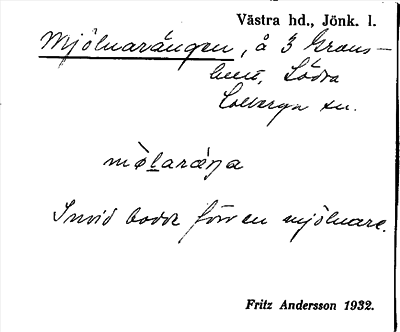 Västra hd., Jönk. l.
Mjölnarängen, å 3 Grans-
hult, Södra
Solberga sn.
mø̀laräŋa
Invid bodde förr en mjölnare.
Fritz Andersson 1932.